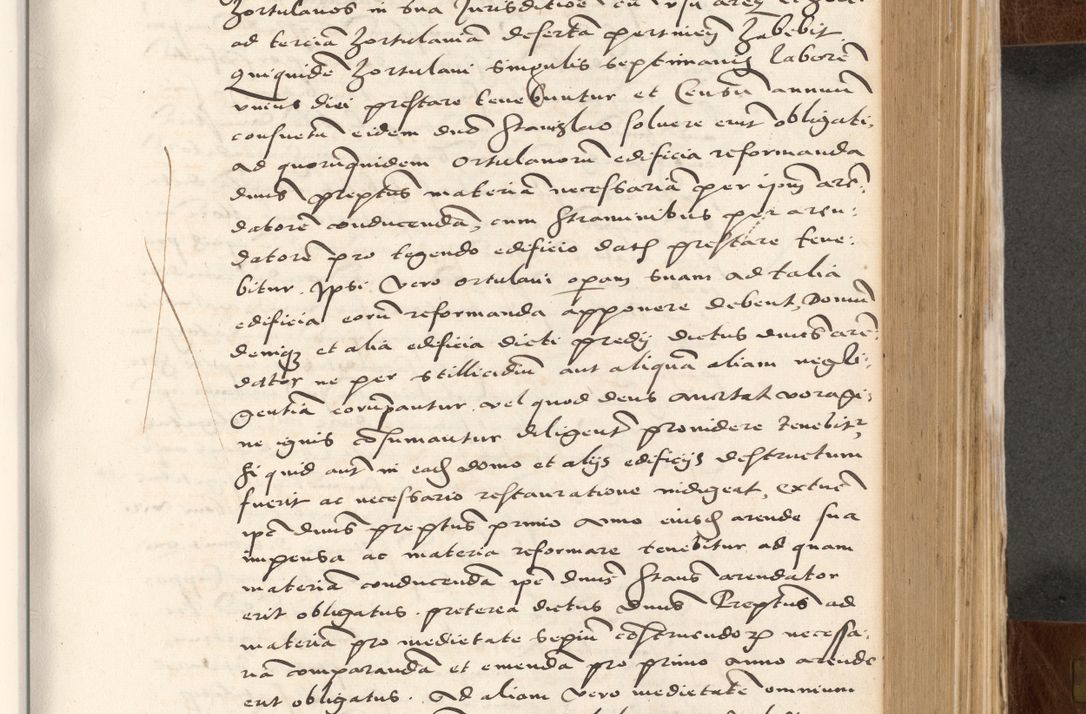 Zortulanos in sua Jurisditioē cū usu
ad terciā Zortulaniā desertā pertineñ Habebit
Quiquidē Zortulani singulis septimanis laborē
unius diei prestare tenebuntur et Censū annuū
consuetū eidem dno Stanislao soluere erunt obligati,
ad quorūquidem ortulanorū edificia reformanda
dnus preptus materiā necessariā per ipm aren:
datorē conducendā, cum straminibus per aren:
datorē pro tegendo edificio datis prestare tene:
bitur. Ipsi vero ortulani operam suam ad talia
edificia eorū reformanda apponere debent, Domū
denique et alia edificia dicti predij dictus dnus aren:
dator ne per stillicidiū aut aliquā aliam negli:
gentiā corrūpantur vel quod deus auertat voragi:
ne ignis cosumantur diligenter prouidere tenebitur,
Si quid autē in eadē domo et alijs edificijs destructum
fuerit ac necessario restauratione indigeat, extunc
ipē dnus preptus primo anno eiusdē arende sua
impensa ac materia reformare tenebitur ad quam
materiā conducendā ipē dnus Stanus arendator
erit obligatus. preterea dictus dnus Preptus ad
materiā pro medietate sepiū costruendorum necessa:
riā comparandā et emendā pro primo anno arende
erit obligatus. Ad aliam vero medietatē omnium